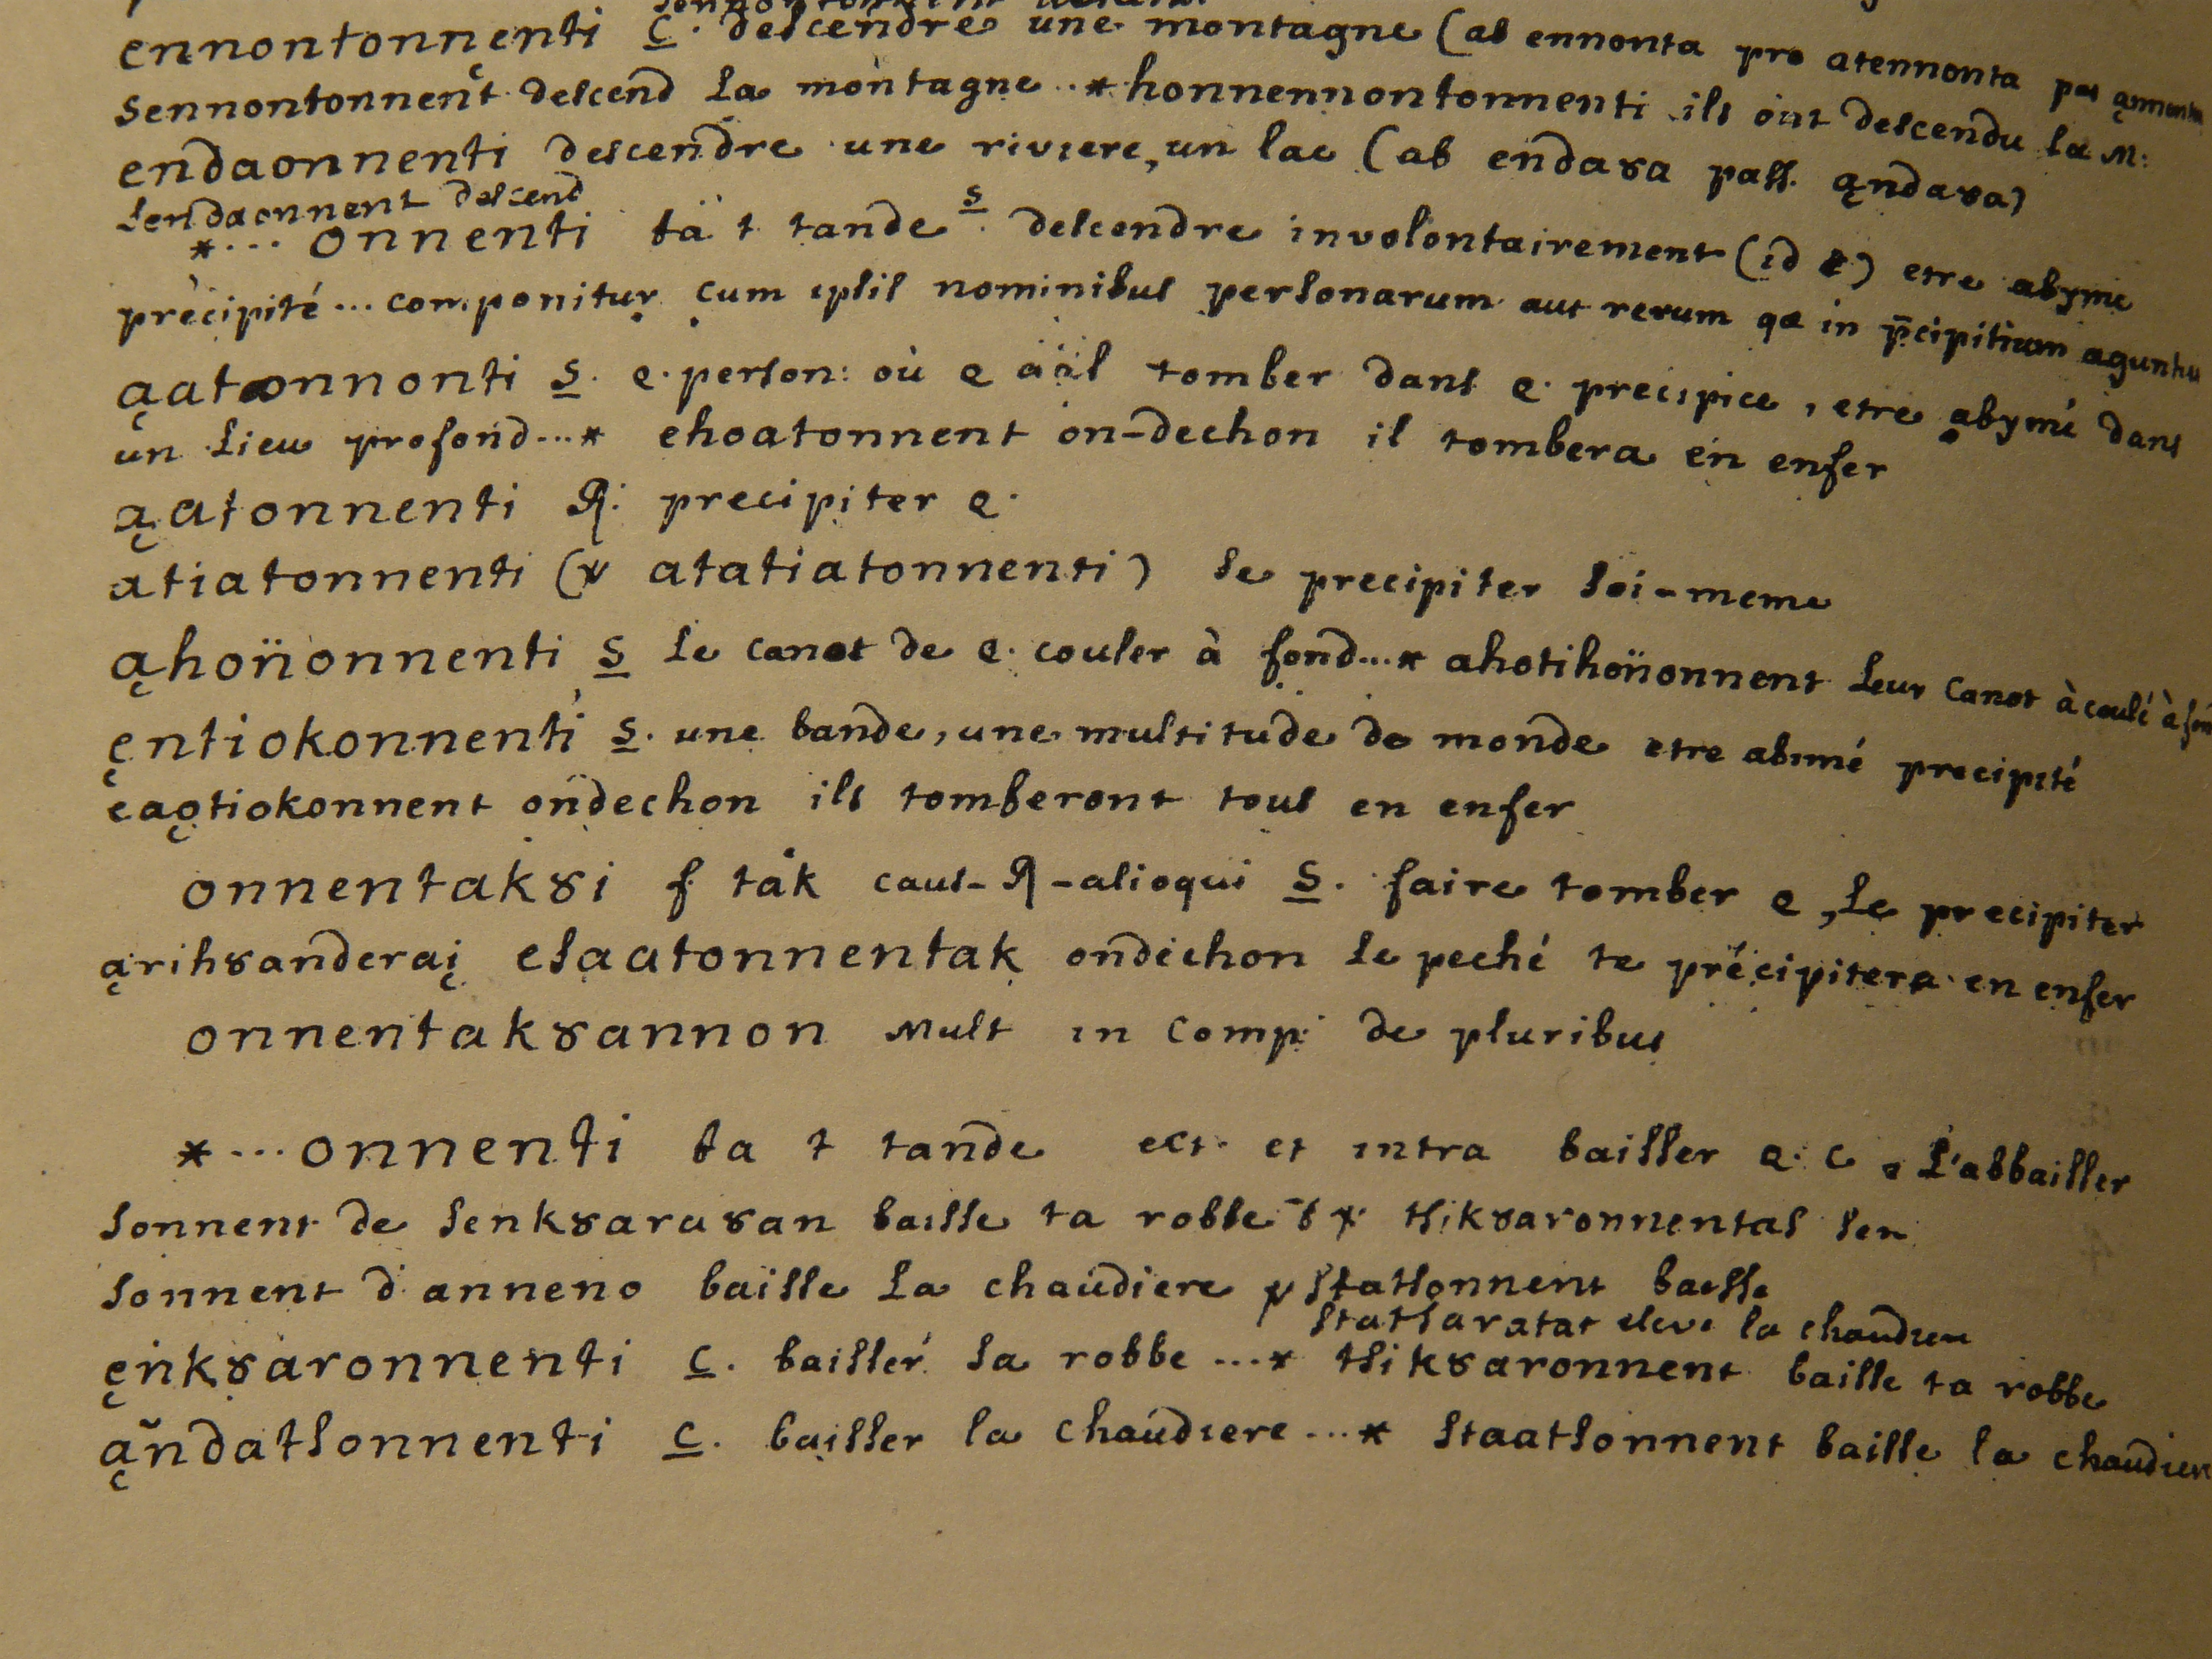 ennontonnȩnti C. descendre une montagne (ab ennonta pro atennonta
sennontonnent descend la montagne ..* honnennontonnenti ils ont descendu la M:
endaonnenti descendre une riviere, un lac (ab endaȣa pass. a̧ndaȣa)
sendaonnent descend
*... onnenti ta t tande S. descendre involontairement (id e) etre abymé
précipité ... componitur cum ipsis nominibus personarum aut rerum qæ in p̄cipitium aguntur
a̧atonnonti S. q. person: où q aäl tomber dans q. precipice, etre abymé dans
un lieu profond...* ehoatonnent on-dechon il tombera en enfer
a̧atonnenti R: precipiter q.
atiatonnenti (v atatiatonnenti) se precipiter soi-meme
a̧honnonnenti S le canot de q. couler à fond...* ahotihonnonnent leur canot à coulé à fon
ȩntiokonnenti S. une bande, une multitude de monde etre abimé precipité
eao̧tiokonnent ondechon ils tomberont tous en enfer
onnentakȣi f. tak caus- R -alioqui S. faire tomber q, le precipiter
a̧rihȣanderai̧ esaatonnentak ondechon le peché te précipitera en enfer
onnentakȣannon Mult in Comp: de pluribus
*... onnenti ta t tande ect. et intra baisser q. c. s'abbaisser
sonnent de senkȣaraȣan baisse ta robbe tsikȣaronnentas sen
sonnent d'anneno baisse la chaudiere v statsonnent baisse
statsaratat eleve la chaudiere
ȩnkȣaronnenti C. baisser sa robbe ...* tsikȣaronnent baisse ta robbe
a̧ndatsonnenti C. baisser la chaudiere ...* staatsonnent baisse la chaudiere